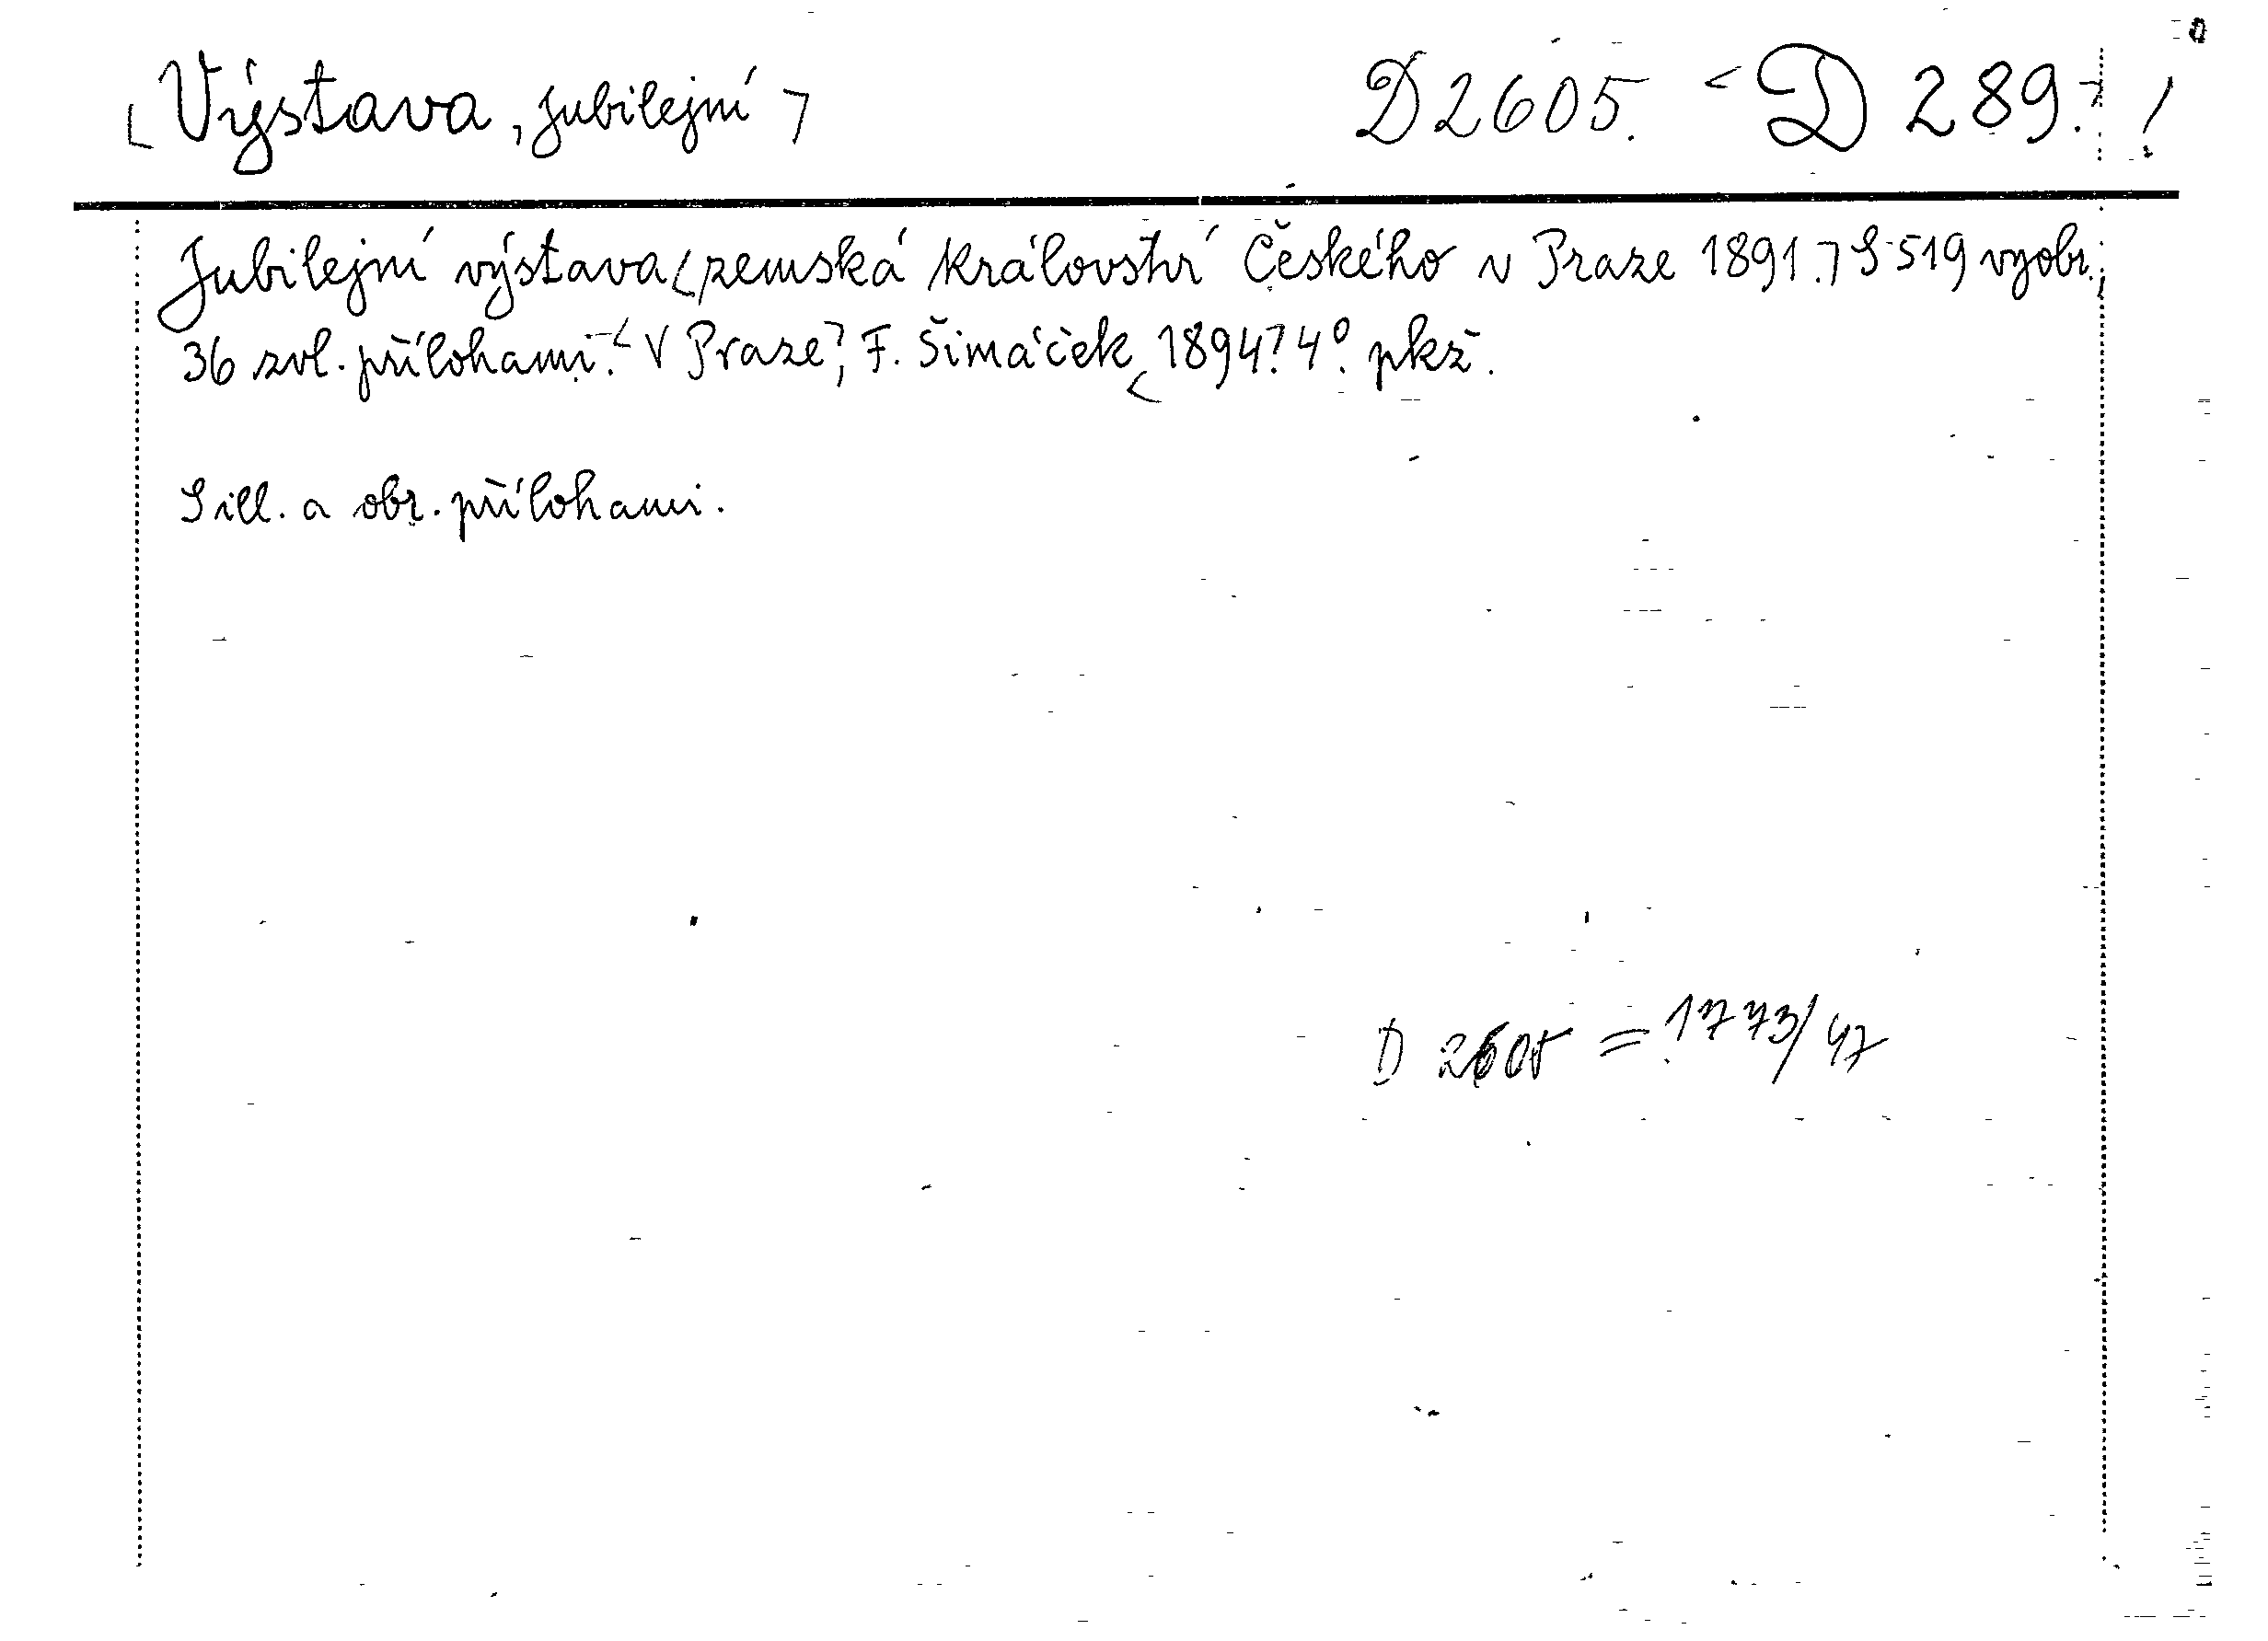 <Výstava, jubilejní> D 2605. <D 289.> !
Jubilejní výstava <zemská království Českého v Praze 1891.> S 519 vyobr.,
36 zvl. přílohami. <V Praze>, F. Šimáček <1894>. 4°. pkž.
S ill. a obr. přílohami.
D 2605 = 1773/47